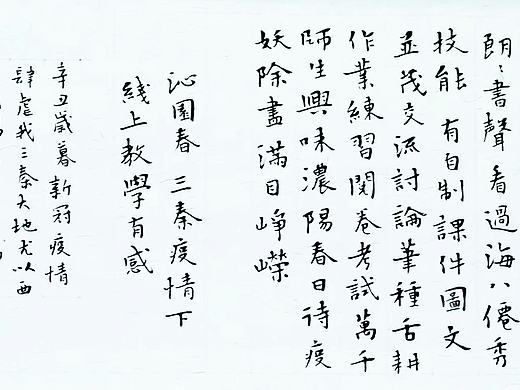 朗々書聲看過海八僊秀
技能有自制課件圖文
並茂交流討論筆種舌耕
作業練習閱卷考試萬千
師生興味濃陽春日待疫
妖除盡滿目崢嶸
沁園春三秦疫情下
綫上教學有感
辛丑歲暮新冠疫情
肆虐我三秦大地尤以西